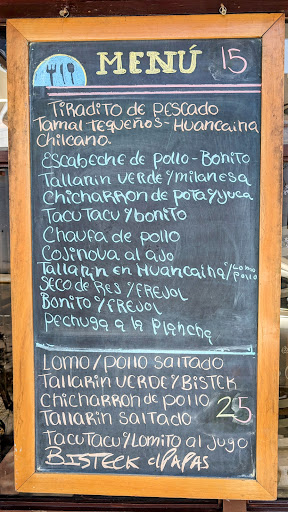 MENÚ 15
TIRADITO DE PESCADO
Tamal-Tequeños-Huancaina
Chilcano.
Escabeche de pollo-Bonito
Tallarin verde y milanesa
Chicharron de pota y yuca
Tacu Tacu y bonito
Chaufa de pollo
Cojinova al ajo
Tallarin en Huancaina c/Lomo/pollo
Seco de Res y FREJOL
Bonito y FREJOL
Pechuga a la Plancha
LOMO/pollo saltado
Tallarin VERDE Y BISTEK
Chicharron de pollo 25
Tallarin Saltado
Tacu Tacu y Lomito al jugo
BISTECK c/PAPAS